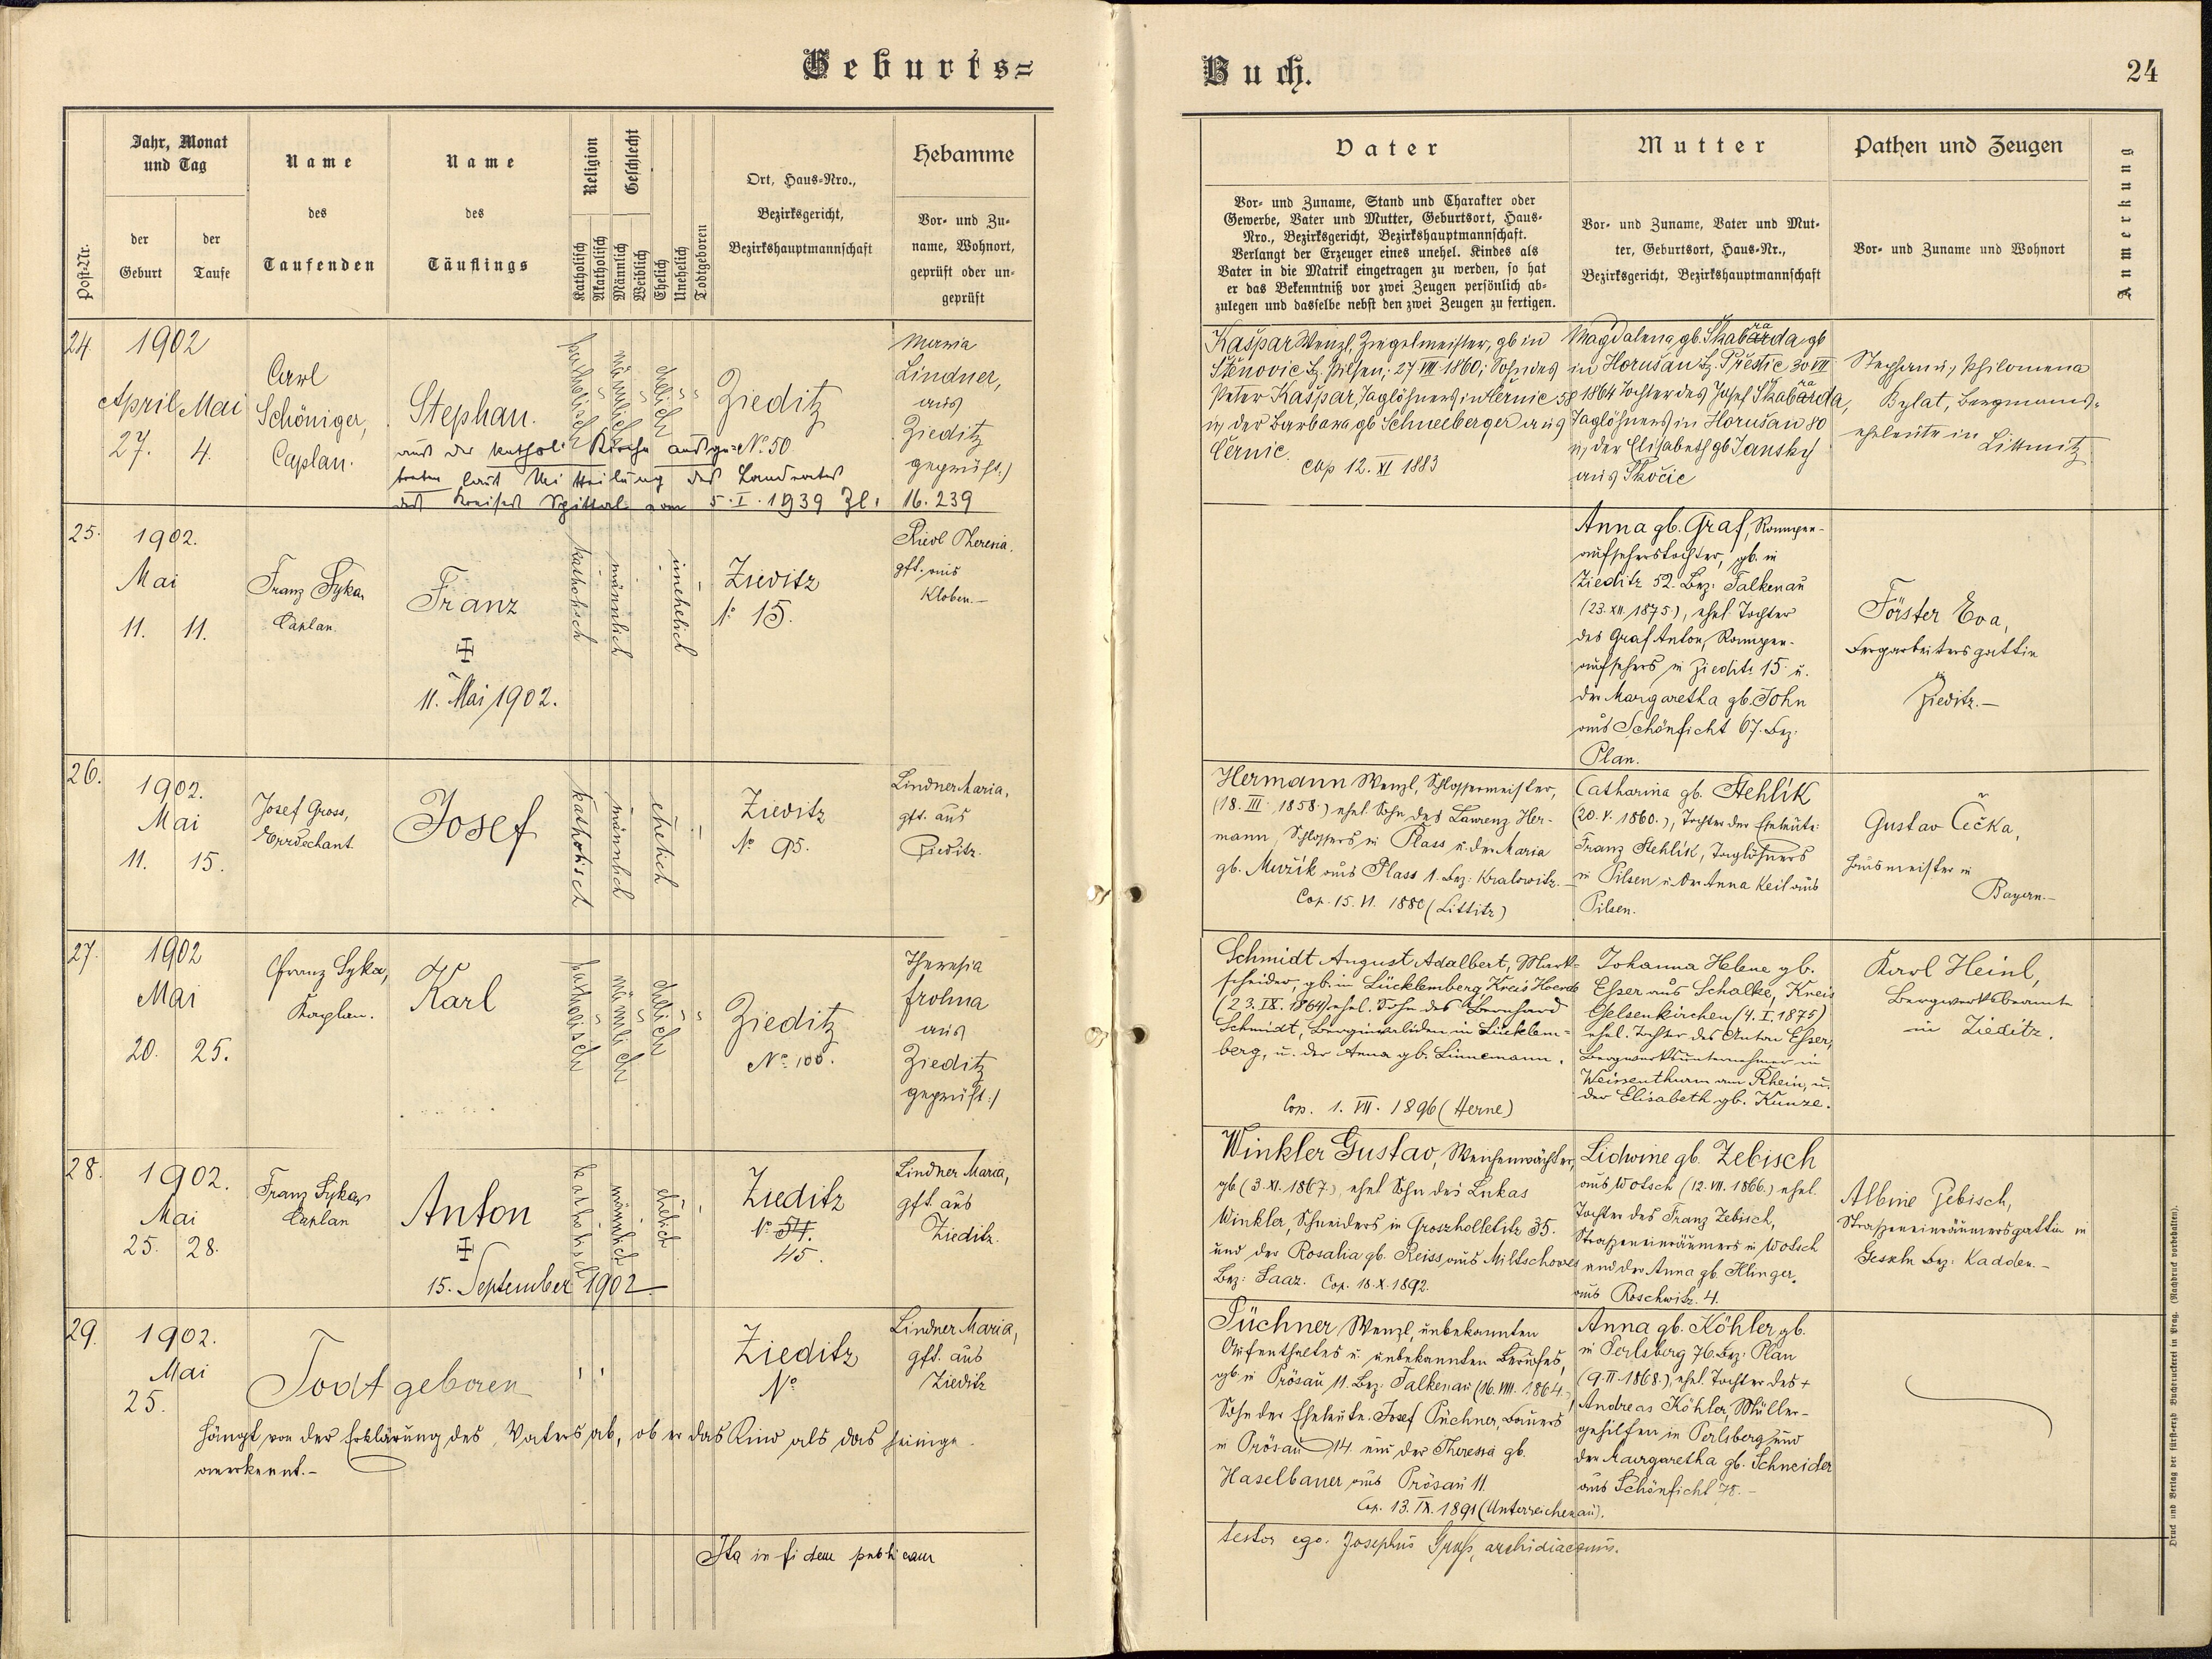 Geburts=
Buch.
24
Post-Nr.
Jahr, Monat
und Tag
der
Geburt
der
Taufe
Name
des
Taufenden
Name
des
Täuflings
Religion
Katholisch
Akatholisch
Geschlecht
Männlich
Weiblich
Ehelich
Unehelich
Todtgeboren
Ort, Haus-Nro.,
Bezirksgericht,
Bezirkshauptmannschaft
Hebamme
Vor- und Zu-
name, Wohnort,
geprüft oder un-
geprüft
Vater
Vor- und Zuname, Stand und Charakter oder
Gewerbe, Vater und Mutter, Geburtsort, Haus-
Nro., Bezirksgericht, Bezirkshauptmannschaft.
Verlangt der Erzeuger eines unehel. Kindes als
Vater in die Matrik eingetragen zu werden, so hat
er das Bekenntniß vor zwei Zeugen persönlich ab-
zulegen und dasselbe nebst den zwei Zeugen zu fertigen.
Mutter
Vor- und Zuname, Vater und Mut-
ter, Geburtsort, Haus-Nr.,
Bezirksgericht, Bezirkshauptmannschaft
Pathen und Zeugen
Vor- und Zuname und Wohnort
Anmerkung
24.
1902
April Mai
27. 4.
Carl
Schöniger,
Caplan.
Stephan.
katholisch
männlich
ehelich
Zieditz
No. 50
Maria
Lindner,
aus
Zieditz
geprüft.)
aus der kathol. Kirche ausge-
treten laut Mitteilung des Landrates
des Kreises Spittal vom 5.I.1939 Zl. 16.239
Kašpar Wenzl, Ziegelmeister, gb in
Štěnovic Bz. Pilsen, 27 VIII 1860, Sohn des
Peter Kašpar, Taglöhners in Černic 58
u, der Barbara gb Schneeberger aus
Černic.
cop 12. XI 1883
Magdalena gb. Skabarda gb
in Horušan Bz. Přestic 30 VII
1864 Tochter des Josef Skabarda,
Taglöhners in Horušan 80
u, der Elisabeth gb Jansky
aus Skočic
Stephan u, Philomena
Bylat, Bergmanns-
eheleute in Littmitz
25.
1902.
Mai
11. 11.
Franz Syka,
Caplan.
Franz
11. Mai 1902.
katholisch
männlich
unehelich
Zieditz
No 15.
Riedl Theresia.
gft. aus
Kloben.-
Anna gb. Graf,
aufseherstochter, gb. in
Zieditz 52. Bez: Falkenau
(23. XII. 1875), ehel. Tochter
des Graf Anton,
aufsehers in Zieditz 15 u.
der Margaretha gb. John
aus Schönficht 67. Bez.
Plan.
Förster Eva,
Bergarbeitersgattin
Zieditz.-
26.
1902.
Mai
11. 15.
Josef Gross,
Erzdechant.
Josef
katholisch
männlich
ehelich
Zieditz
No 95.
Lindner Maria,
gft. aus
Zieditz.
Hermann Wenzl, Schlossermeister,
(18. III. 1858.) ehel. Sohn des Laurenz Her-
mann, Schlossers in Plass u. der Maria
gb. Mužík aus Plass 1. Bez: Kralowitz.-
Cop. 15. VI. 1880 (Littitz)
Catharina gb. Stehlík
(20. V. 1860.), Tochter der Eheleute:
Franz Stehlík, Taglöhners
in Pilsen u. der Anna Keil aus
Pilsen.
Gustav Čečka,
Hausmeister in
Bayern.-
27.
1902
Mai
20. 25.
Franz Syka,
Kaplan.
Karl
katholisch
männlich
ehelich
Zieditz
No. 100.
Theresia
Frohna
aus
Zieditz
geprüft.)
Schmidt August Adalbert, Mark-
scheider, gb. in Lücklemberg, Kreis Hoerde
(23. IX. 1864) ehel. Sohn des Bernhard
Schmidt, Berginvaliden in Lücklem-
berg, u. der Anna gb. Linnemann.
Cop. 1. VII. 1896 (Herne)
Johanna Helene gb.
Esser aus Schalke, Kreis
Gelsenkirchen (4. I. 1875)
ehel. Tochter des Anton Esser,
Bergwerksunternehmer in
Weissenthurm am Rhein, u.
der Elisabeth gb. Kunze.
Karl Heinl,
Bergwerksbeamte
in Zieditz.
28.
1902.
Mai
25. 28.
Franz Syka,
Caplan
Anton
15. September 1902
katholisch
männlich
ehelich
Zieditz
No 54.
45.
Lindner Maria,
gft. aus
Zieditz.
Winkler Gustav, Weichenwächter,
gb. (3. XI. 1867.), ehel. Sohn des Lukas
Winkler, Schneiders in Groszholletitz 35.
und der Rosalia gb. Reiss aus Miltschowes
Bez: Saaz. Cop. 18. X. 1892.
Lidwine gb. Zebisch
aus Wotsch (12. VII. 1866.) ehel.
Tochter des Franz Zebisch,
Strasseneinräumers in Wotsch
und der Anna gb. Klinger,
aus Roschwitz. 4.
Albine Zebisch,
Strasseneinräumersgattin in
Gesseln Bez: Kadden.-
29.
1902.
Mai
25.
Todtgeboren
Zieditz
No
Lindner Maria,
gft. aus
Zieditz
Hängt von der Erklärung des Vaters ab, ob er das Kind als das seinige
anerkennt.-
Püchner Wenzl, unbekannten
Aufenthaltes u. unbekannten Berufes,
gb. in Prösau 11. Bez: Falkenau (16. VIII. 1864.)
Sohn der Eheleute Josef Püchner, Bauers
in Prösau 14 und der Theresia gb.
Haselbauer aus Prösau 11.
Cop. 13. IX. 1891 (Unterreichenau).
Anna gb. Köhler gb.
in Perlsberg 76. Bez: Plan
(9. II. 1868.), ehel. Tochter des +
Andreas Köhler, Müller-
gehilfen in Perlsberg und
der Margaretha gb. Schneider
aus Schönficht 78.-
Ita in fidem publicam
testor ego. Josephus Gross, archidiaconus.
Druck und Verlag der fürst-erzb. Buchdruckerei in Prag. (Nachdruck vorbehalten).